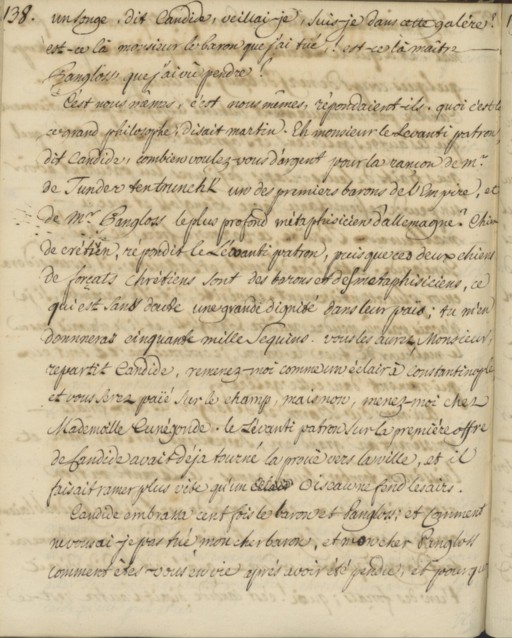 138. un songe, dit Candide, veillai-je, suis-je dans cette galére?
est-ce là monsieur le baron que j'ai tué? est-ce là maître
Pangloss que j'ai vû pendre?
C'est nous mêmes, c'est nous mêmes, répondaient-ils. quoi c'est là
ce grand philosophe, disait martin. Eh monsieur le Levanti patron,
dit Candide, combien voulez-vous d'argent pour la rançon de mr.
de Tunder ten trunckh un des premiers barons de l'Empire, et
de Mr. Pangloss le plus profond métaphisicien d'allemagne? Chien
de crétien, répondit le Levanti patron, puisque ces deux chiens
de forçats Chrétiens sont des barons et des métaphisiciens, ce
qui est sans doute une grande dignité dans leur païs; tu m'en
donneras cinquante mille Sequins. vous les aurez, Monsieur,
repartit Candide, remenez-moi comme un éclair à Constantinople
et vous serez païé sur le champ, mais non, menez-moi chez
Mademoille Cunégonde. le Levanti patron sur la première offre
de Candide avait déja tourné la proüe vers la ville, et il
faisait ramer plus vite qu'un Oiseau ne fend les airs.
Candide embrassa cent fois le baron et Pangloss; et Comment
ne vous ai-je pas tué mon cher baron, et mon cher Pangloss
comment êtes-vous en vie après avoir été pendu, et pourquoi